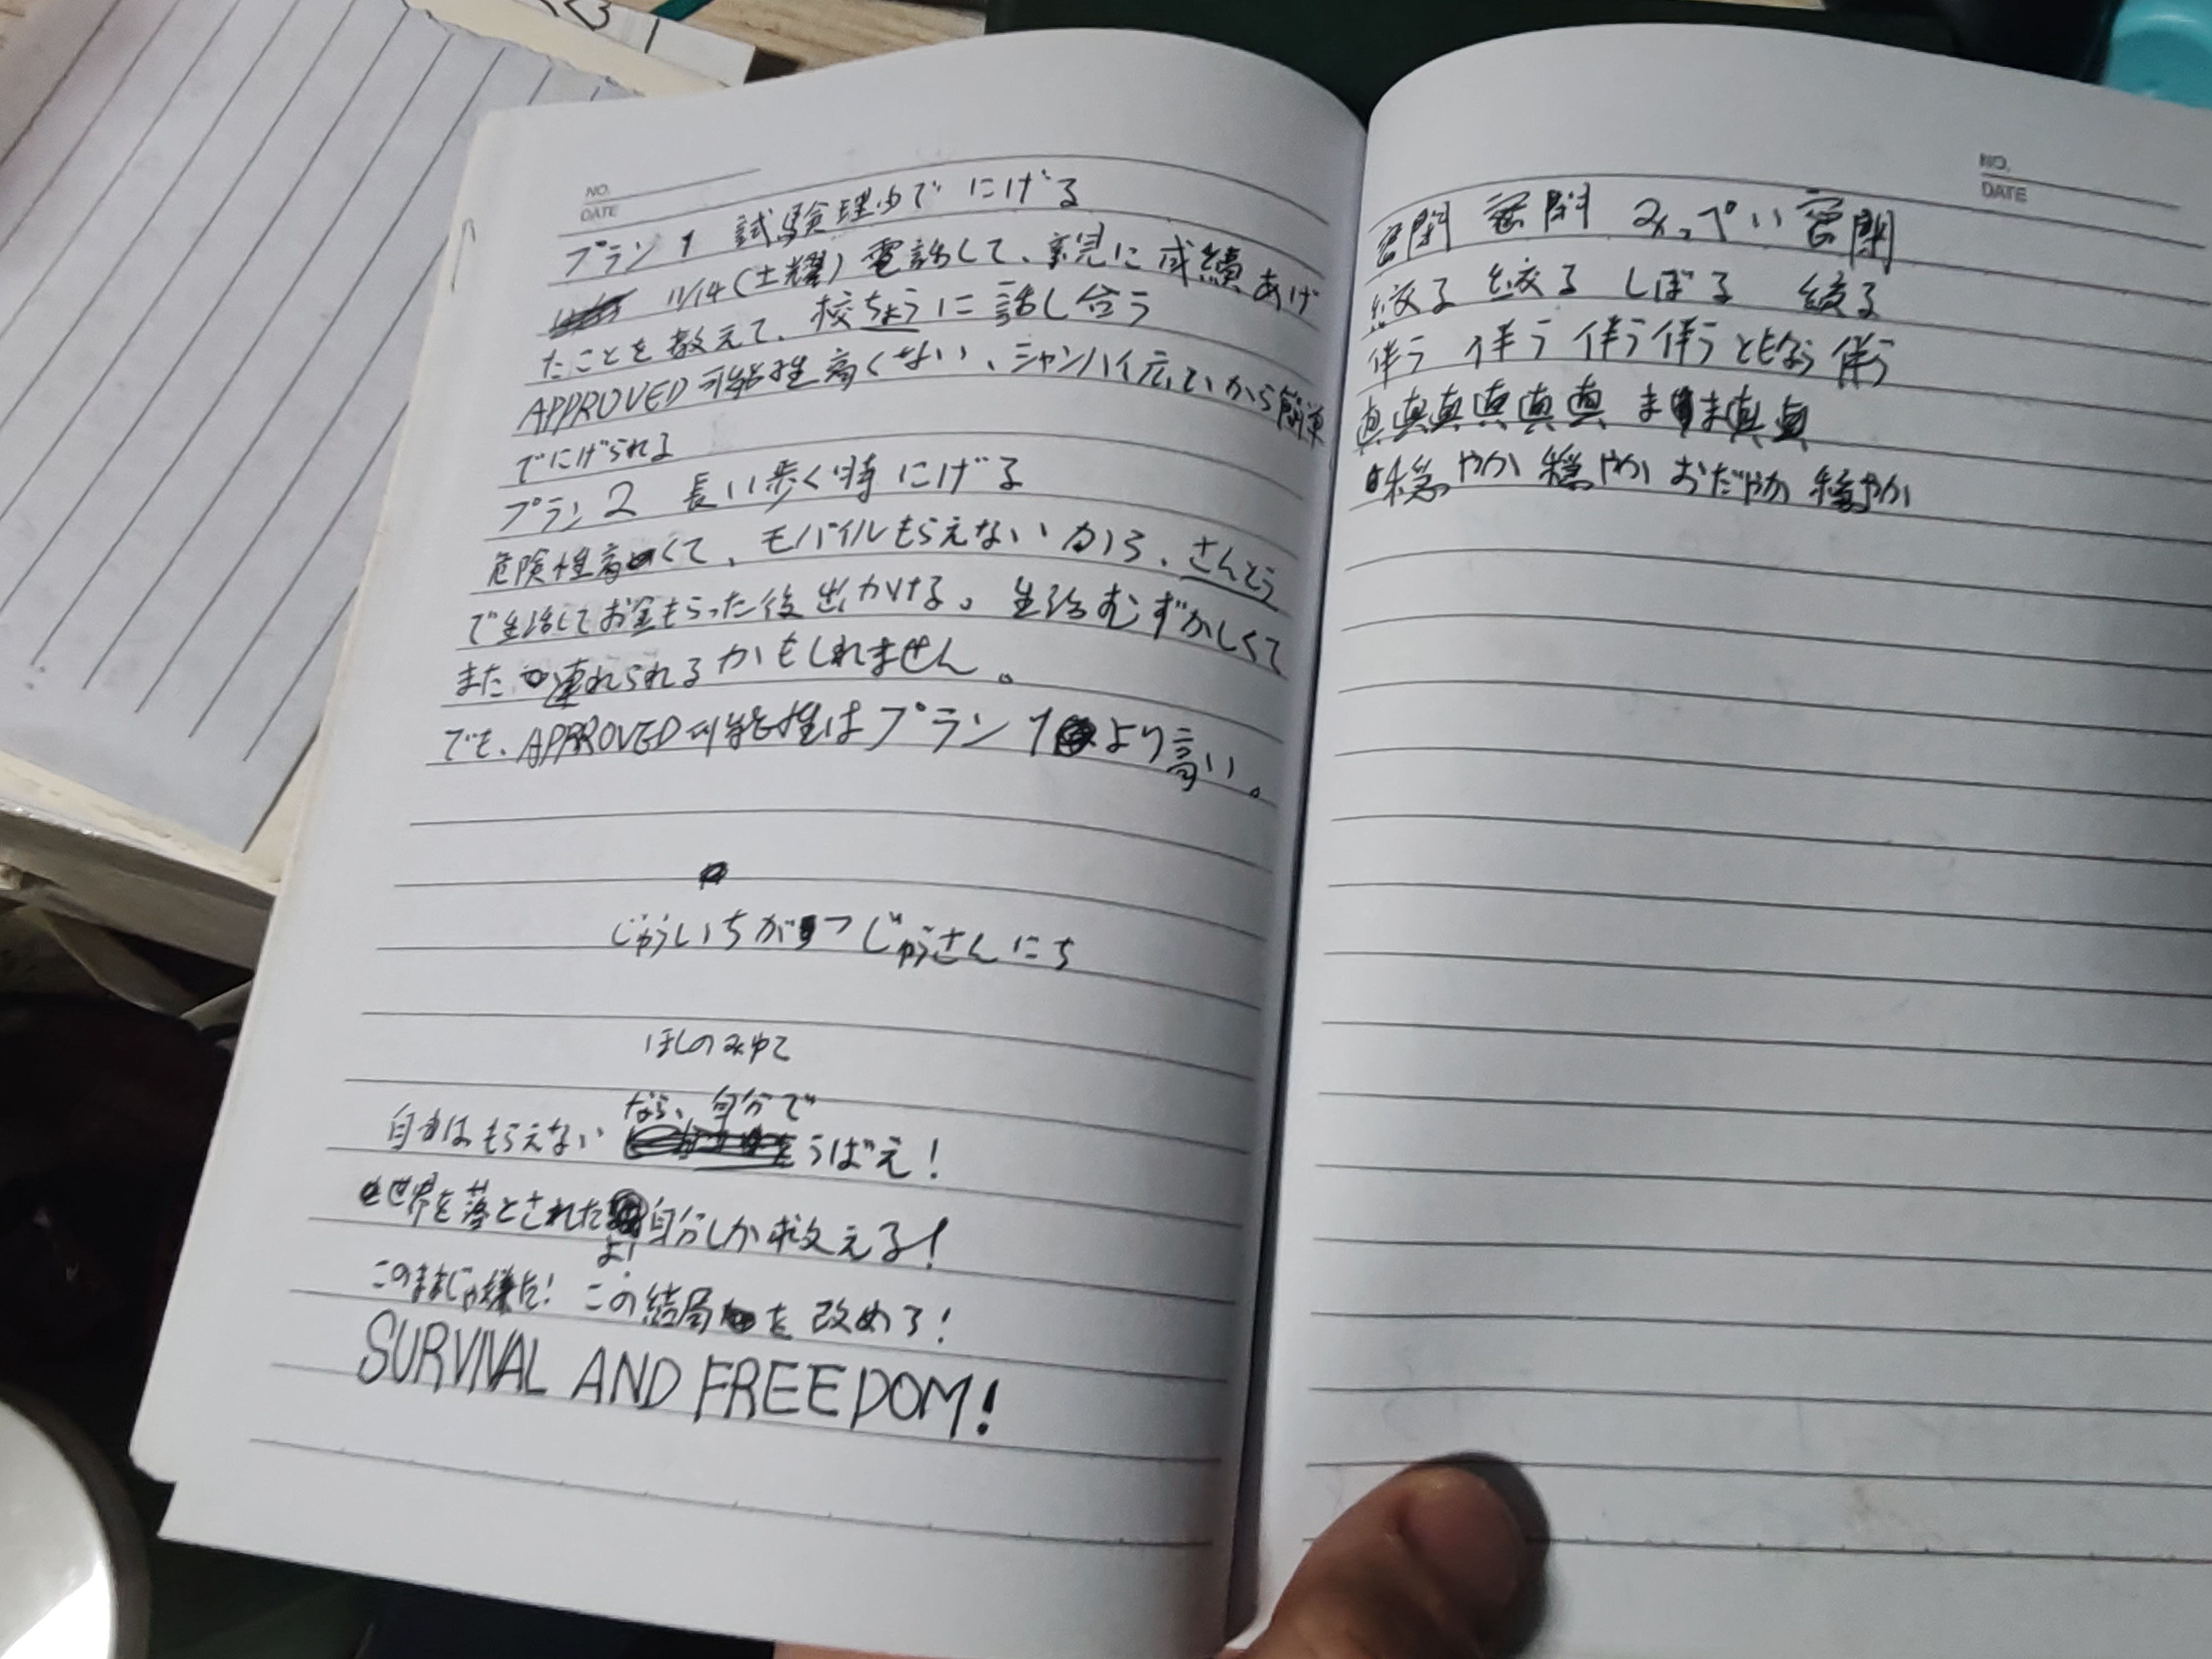 NO.
DATE
プラン1 試験理由で にげる
11/14(土耀)電話して、親に成績あげ
たことを教えて、校ちょうに話し合う
APPROVED可能性高くない、シャンハイ広いから簡単
でにげられる
プラン2 長い歩く時にげる
危険性高くて、モバイルもらえないから、さんとう
で生活してお金もらった後出かける。生活むずかしくて
また連れられるかもしれません。
でも、APPROVED可能性はプラン1より高い。
じゅういちがつじゅうさんにち
ほしのみゆて
なら、自分で
自由はもらえない うばえ!
世界を落とされた自分しか救える!
よ!
このままじゃ嫌だ! この結局を改めろ!
SURVIVAL AND FREEDOM!
NO.
DATE
密閉 密閉 みっぺい 密閉
絞る 絞る しぼる 絞る
伴う 伴う 伴う 伴う ともなう 伴う
真真真真真真 ま ま真真
穏やか 穏やか おだやか 穏やか